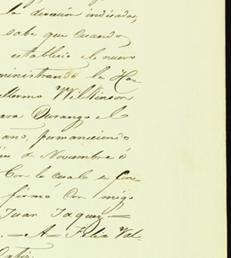 la direccion indicada,
sabe que cuando
establecio el nuevo
ministrando la Ha-
llermo Wilkinson
ara Durango el
ano, permaneciendo
de Noviembre ó
Con lo cual se con-
firmó Con migo
Juan Jaquez —
. — A Felix Val-